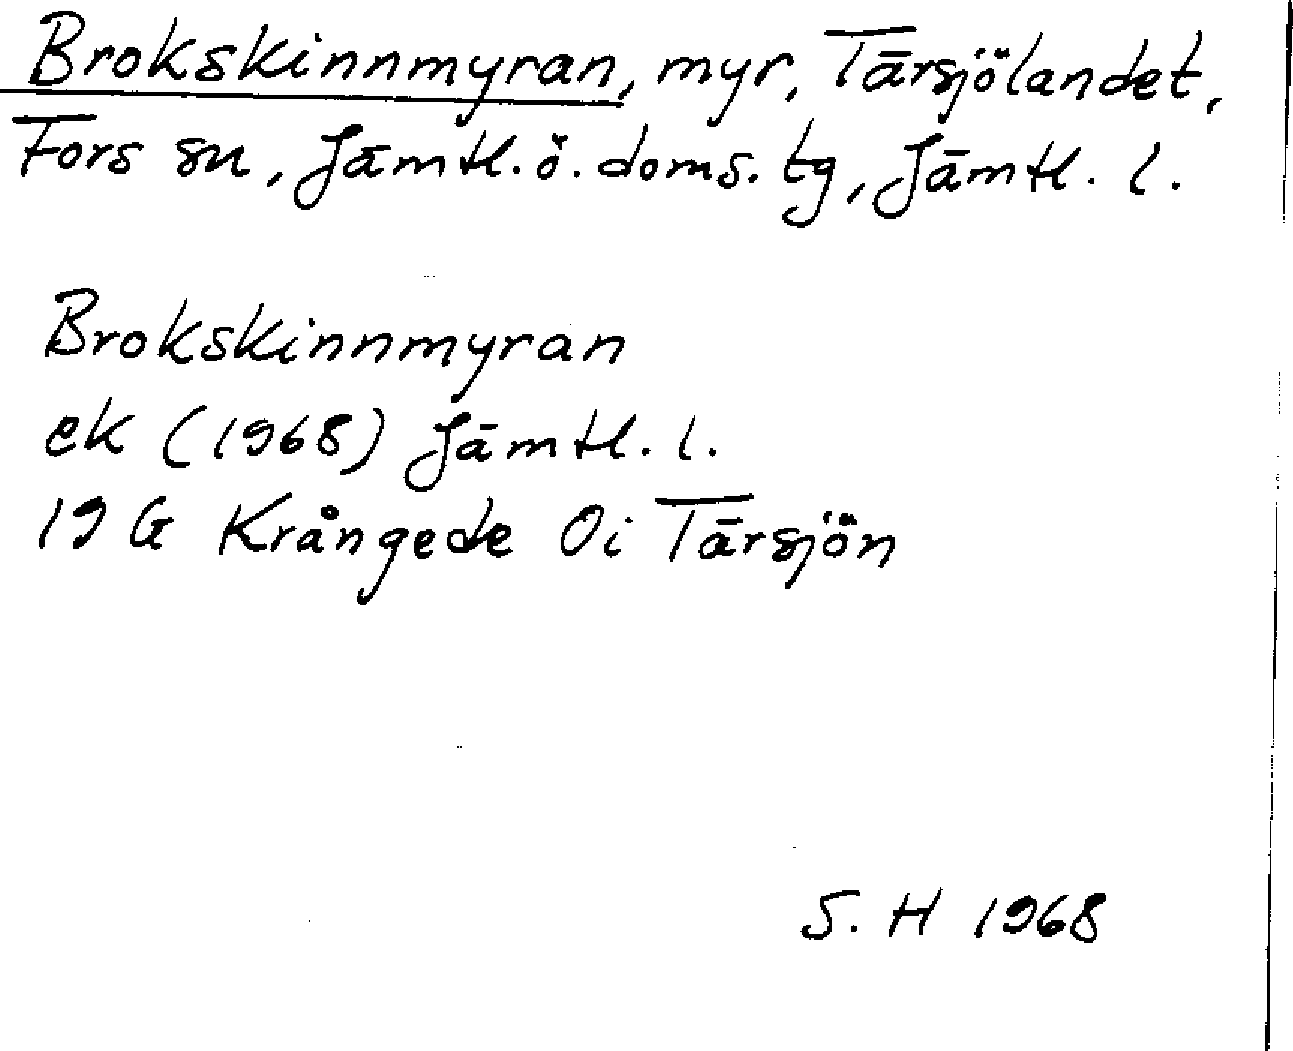 Brokskinnmyran, myr, Tärsjölandet,
Fors sn, Jämtl. ö. doms. tg, Jämtl. l.
Brokskinnmyran
ek (1968) Jämtl. l.
19 G Krångede Oi Tärsjön
S. H 1968